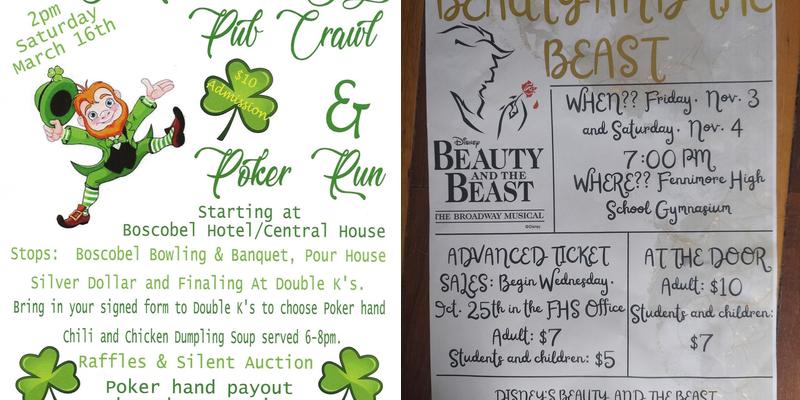 2pm
Saturday
March 16th
Pub Crawl
$10
Admission
&
Poker Run
Starting at
Boscobel Hotel/Central House
Stops: Boscobel Bowling & Banquet, Pour House
Silver Dollar and Finaling At Double K's.
Bring in your signed form to Double K's to choose Poker hand
Chili and Chicken Dumpling Soup served 6-8pm.
Raffles & Silent Auction
Poker hand payout
BEAUTY AND THE
BEAST
Disney
BEAUTY
AND THE
BEAST
THE BROADWAY MUSICAL
©Disney
WHEN?? Friday, Nov. 3
and Saturday, Nov. 4
7:00 PM
WHERE?? Fennimore High
School Gymnasium
ADVANCED TICKET
SALES: Begin Wednesday,
Oct. 25th in the FHS Office
Adult: $7
Students and children: $5
AT THE DOOR
Adult: $10
Students and children:
$7
DISNEY'S BEAUTY AND THE BEAST